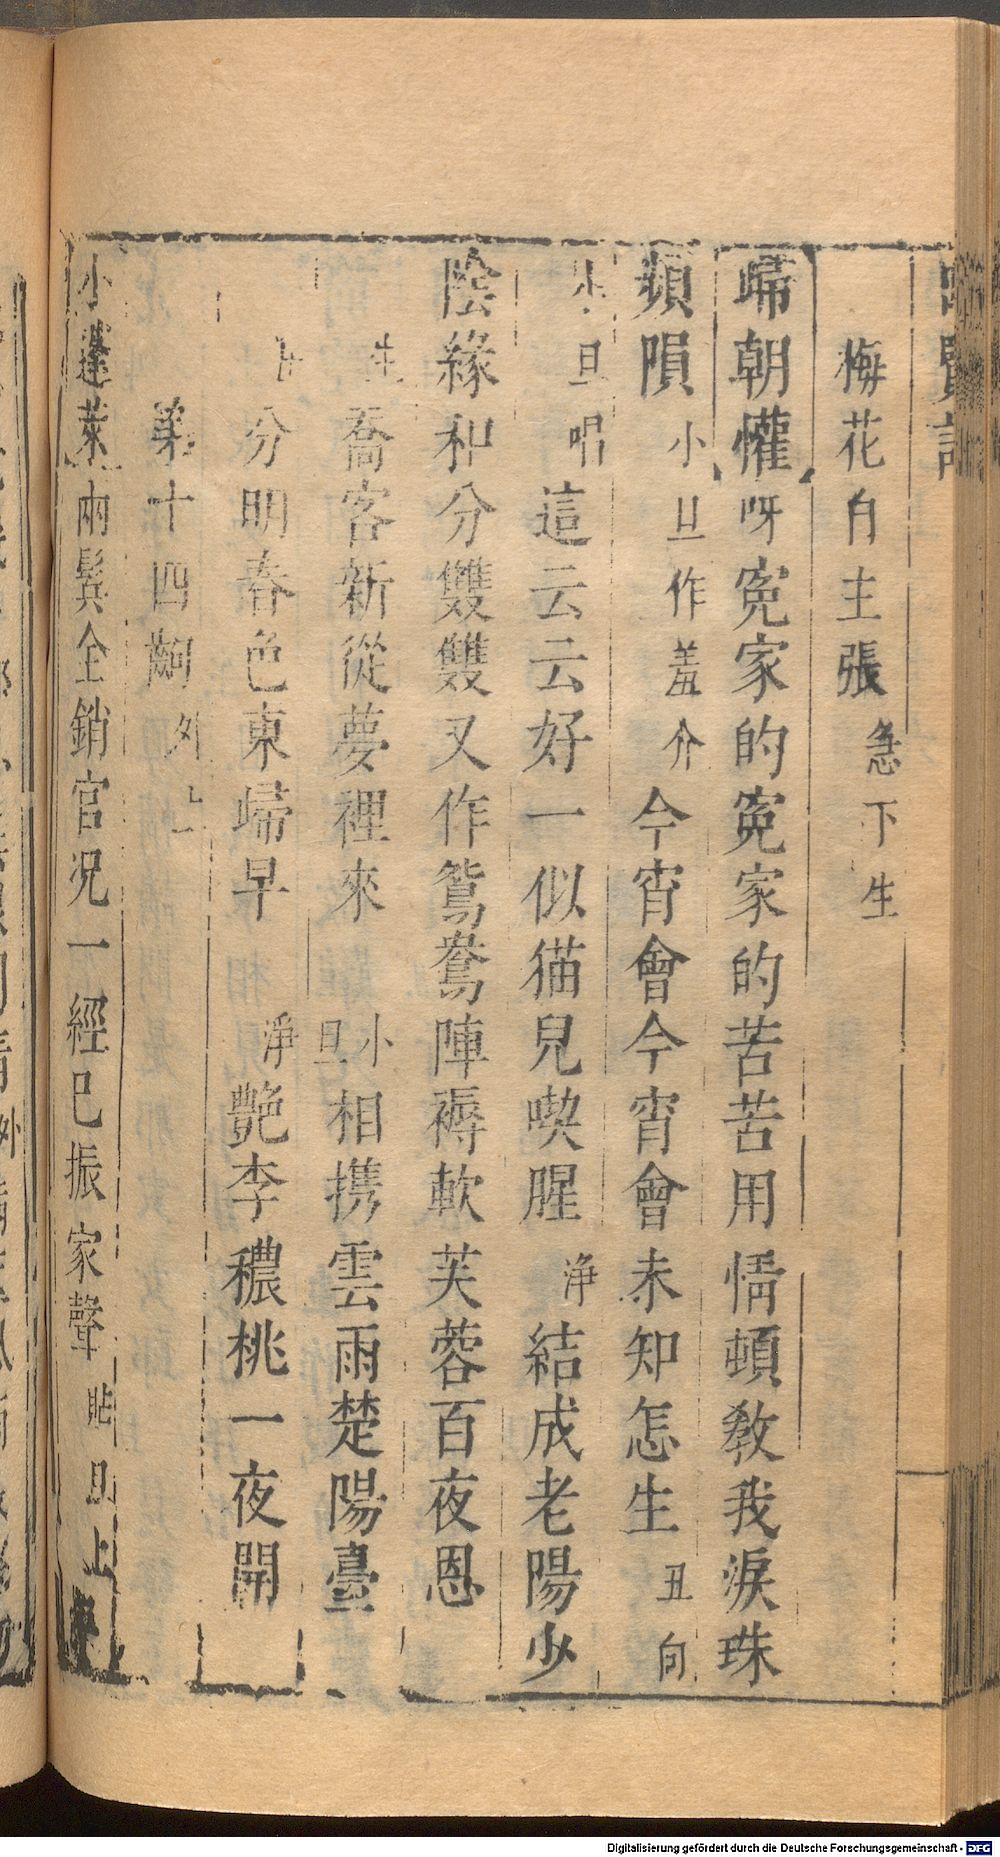 梅花自主張急下生
歸朝懽呀寃家的寃家的苦苦用情頓教我淚珠
蘋隕小旦作羞介今宵會今宵會未知怎生丑向
小旦唱這云云好一似猫兒喫腥淨結成老陽少
陰緣和分雙雙又作鴛鴦陣褥軟芙蓉百夜恩
生喬客新從夢裡來小旦相携雲雨楚陽臺
分明春色東歸早淨艷李穠桃一夜開
第十四齣外上
小蓬萊兩鬂全銷官况一經已振家聲貼旦上
Digitalisierung gefördert durch die Deutsche Forschungsgemeinschaft - DFG